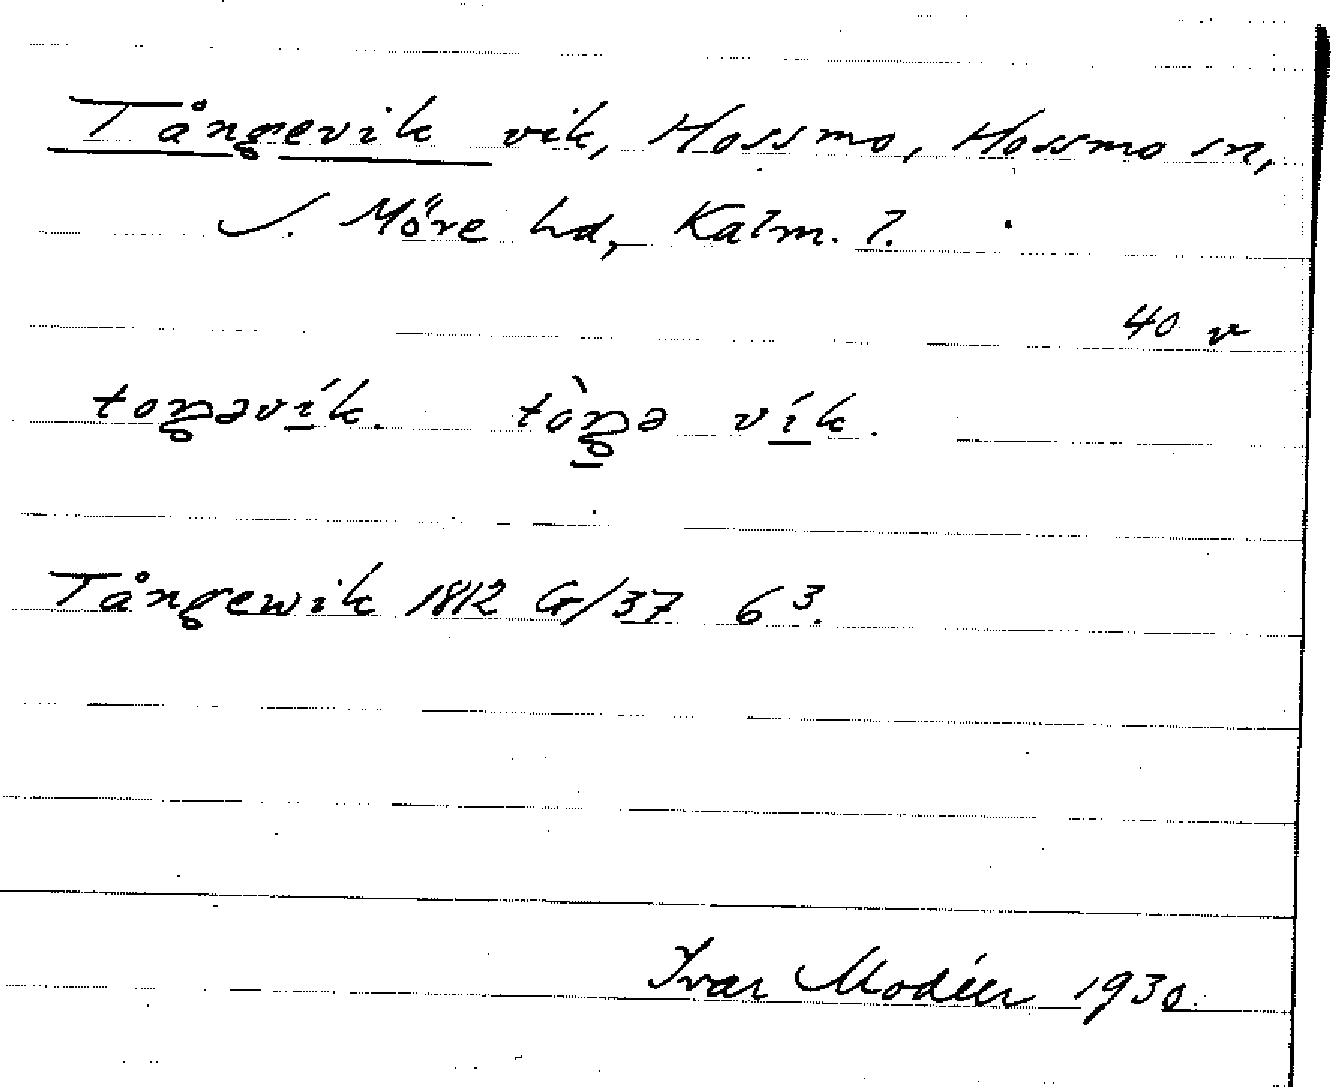 Tångevik vik, Hossmo, Hossmo sn,
S. Möre hd, Kalm. l.
40 v
toŋəvík. tòŋə vík.
Tångewik 1812 G/37 6³.
Ivar Modéer 1930.